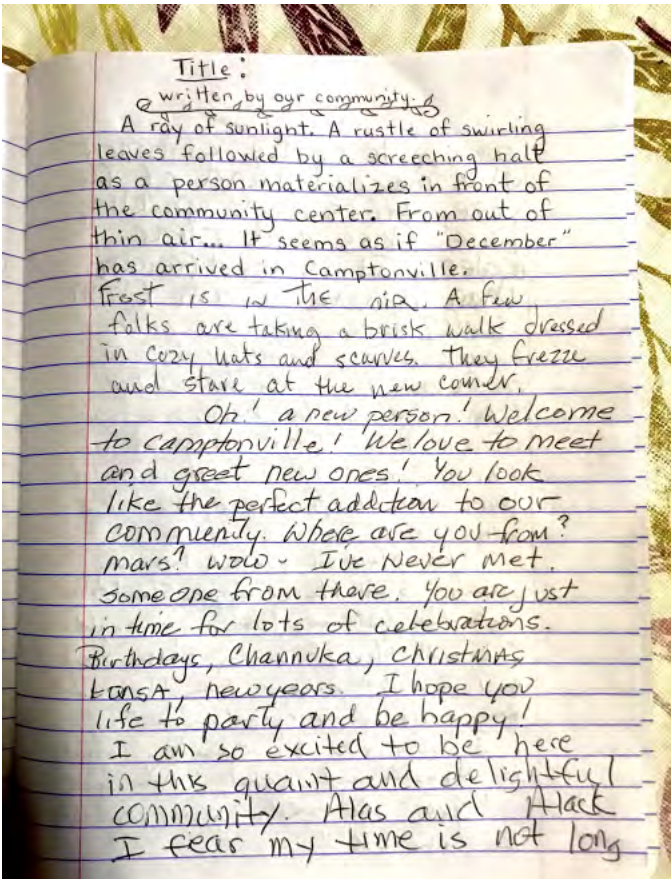 Title:
written by our community.
A ray of sunlight. A rustle of swirling
leaves followed by a screeching halt
as a person materializes in front of
the community center. From out of
thin air... It seems as if "December"
has arrived in Camptonville.
Frost is in the air. A few
folks are taking a brisk walk dressed
in cozy hats and scarves. They frezze
and stare at the new comer.
Oh! a new person! Welcome
to Camptonville! We love to meet
and greet new ones! You look
like the perfect addition to our
commuenty. Where are you from?
mars? wow - I've Never met
someone from there. You are just
in time for lots of celebrations.
Birthdays, Channuka, Christmas,
kansa, new years. I hope you
life to party and be happy!
I am so excited to be here
in this quaint and delightful
community. Alas and Alack
I fear my time is not long